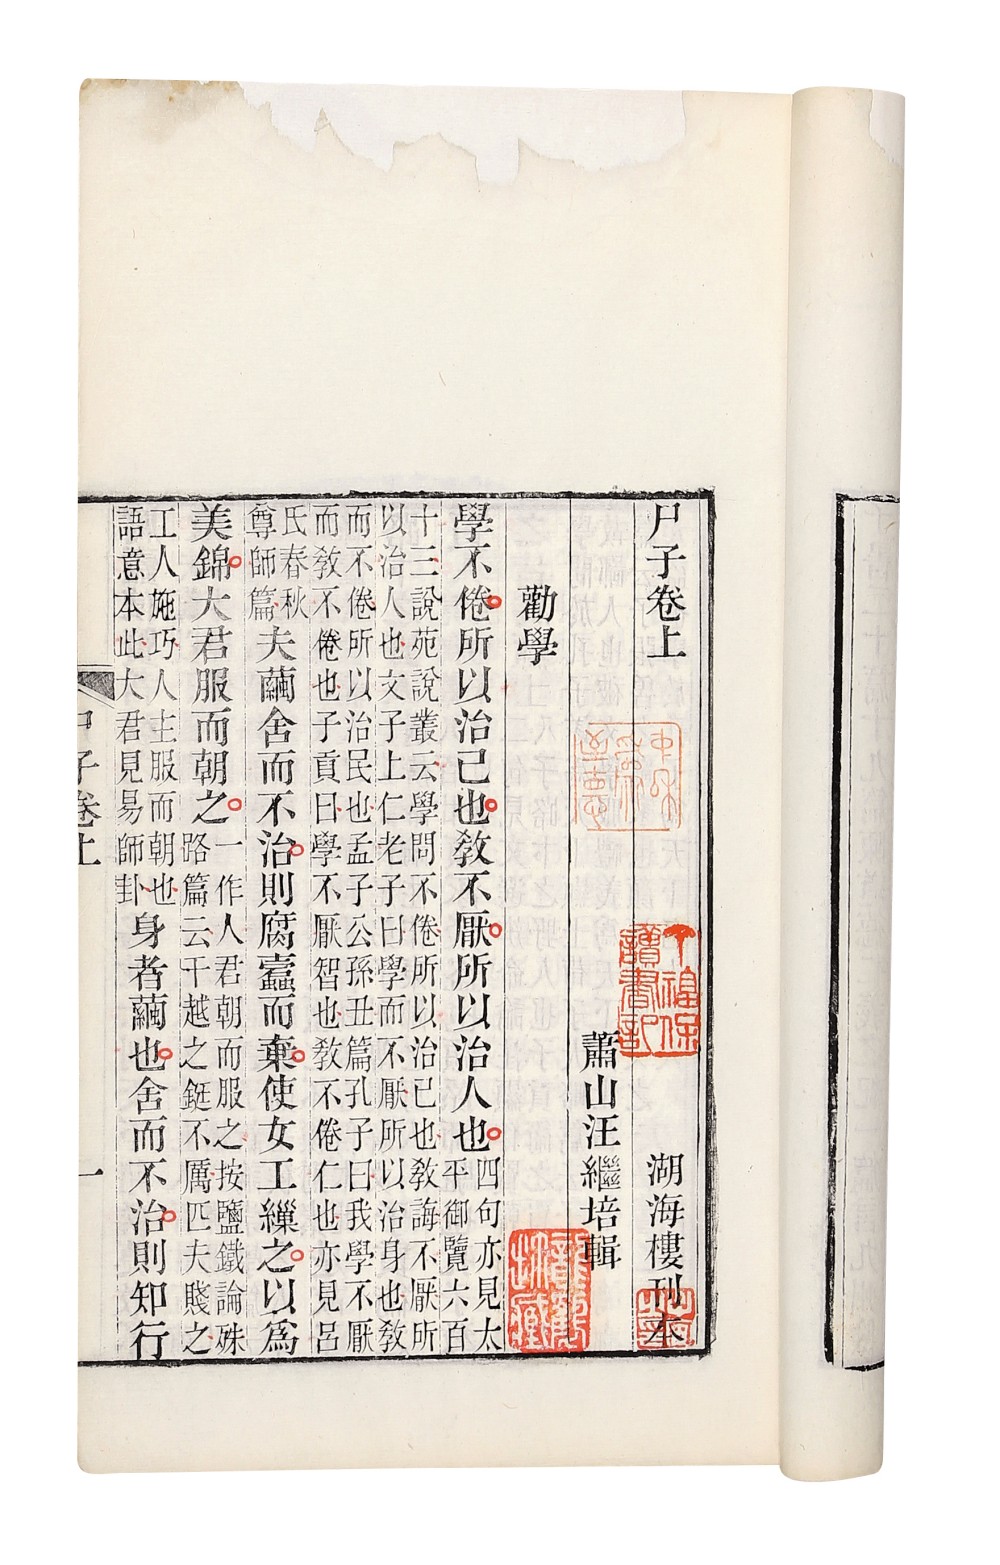 尸子卷上
湖海樓刊本
蕭山汪繼培輯
勸學
學不倦所以治己也教不厭所以治人也四句亦見太
平御覽六百
十三說苑說叢云學問不倦所以治己也教誨不厭所
以治人也文子上仁老子曰學而不厭所以治身也教
而不倦所以治民也孟子公孫丑篇孔子曰我學不厭
而教不倦也子貢曰學不厭智也教不倦仁也亦見呂
氏春秋
尊師篇夫繭舍而不治則腐蠹而棄使女工繅之以為
美錦大君服而朝之一作人君朝而服之按鹽鐵論殊
路篇云干越之鋌不厲匹夫賤之
工人施巧人主服而朝也
語意本此大君見易師卦身者繭也舍而不治則知行
尸子卷上
一
丁福保
讀書記